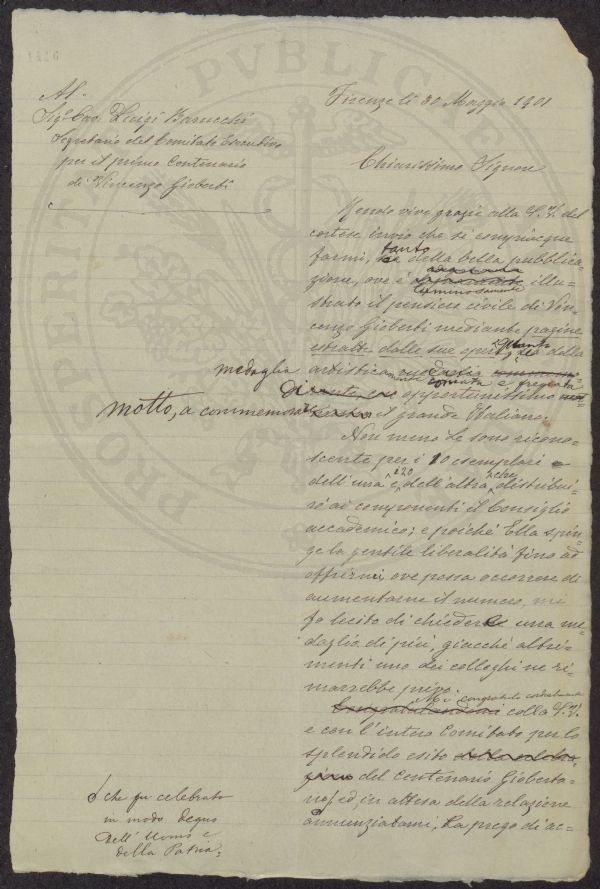 Al.
Sig. Cav. Luigi Barucchi
Segretario del Comitato Esecutivo
per il primo Centenario
di Vincenzo Gioberti
Firenze li 30 Maggio 1901
Chiarissimo Signore
Rendo vive grazie alla S. V. del
cortese invio che si compiacque
farmi, tanto della bella pubblica-
zione, ove è luminosamente illu-
strato il pensiero civile di Vin-
cenzo Gioberti mediante pagine
estratte dalle sue opere, quanto della
artisticamente coniata e fregiata
medaglia
opportunissimo
motto, a commemorare il grande Italiano.
Non meno Le sono ricono-
scente per i 10 esemplari
dell'una e i 20 dell'altra, che distribui-
rò ai componenti il Consiglio
accademico; e poiché Ella spin-
ge la gentile liberalità fino ad
offrirmi, ove possa occorrere di
aumentarne il numero, mi
fo lecito di chiedere una me-
daglia di più, giacché altri-
menti uno dei colleghi ne ri-
marrebbe privo.
Mi congratulo cordialmente
Congratulandomi colla S. V.
e con l'intero Comitato per lo
splendido esito
del Centenario Gioberta-
no, ed, in attesa della relazione
annunziatami, La prego di ac-
che fu celebrato
in modo degno
dell'Uomo e
della Patria;
PROSPERITATI PVBLICAE